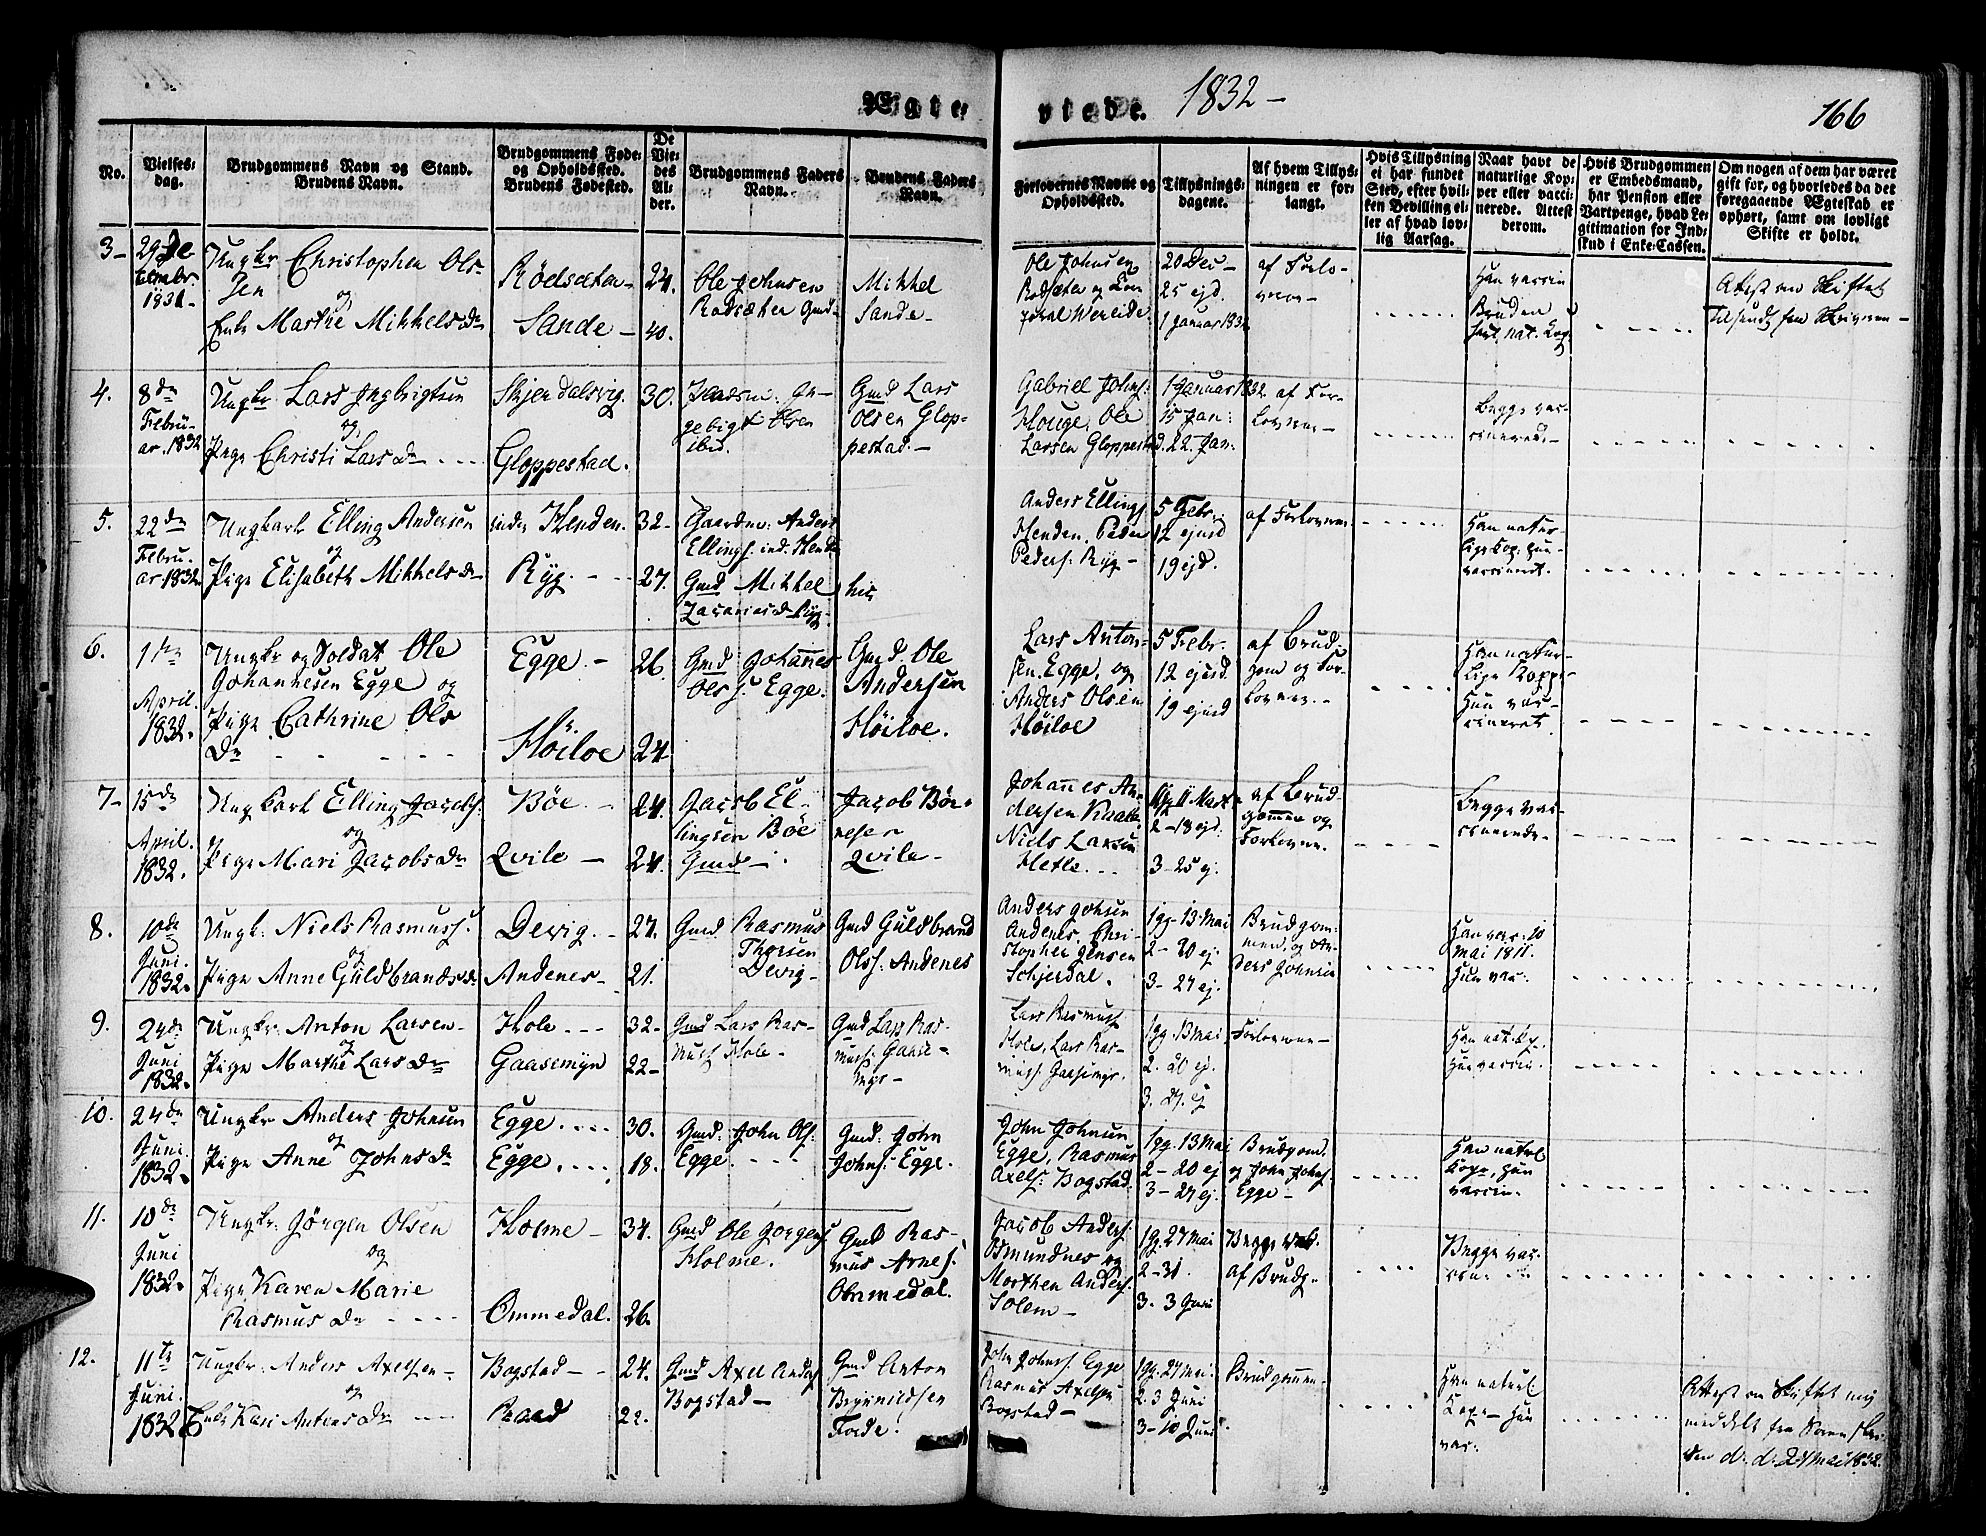 Ægte viede. 1832 –
166
No.
Vielses-
dag.
Brudgommens Navn og Stand.
Brudens Navn.
Brudgommens Føde-
og Opholdssted.
Brudens Fødested.
De
Vie-
des
Al-
der.
Brudgommens Faders
Navn.
Brudens Faders
Navn.
Forlovernes Navne og
Opholdssted.
Tillysnings-
dagene.
Af hvem Tillys-
ningen er for-
langt.
Hvis Tillysning
ei har fundet
Sted, efter hvil-
ken Bevilling el-
ler af hvad lov-
lig Aarsag.
Naar havt de
naturlige Kop-
per eller vacci-
nerede. Attest
derom.
Hvis Brudgommen
er Embedsmand,
har Pension eller
Vartpenge, hvad Le-
gitimation for Ind-
skud i Enke-Cassen.
Om nogen af dem har været
gift før, og hvorledes da det
foregaaende Ægteskab er
ophørt, samt om lovligt
Skifte er holdt.
3 –
29 De
cembr.
1831.
Ungkr Christopher Ols-
sen
og
Enke Marthe Mikkelsdr
Rödsæter –
Sande –
24.
40.
Ole Johnsen
Rödsæter Gmd –
Mikkel
Sande –
Ole Johnsen
Rödsæter og
Wereide.
20 Dec –
25 ejd.
1 Januar 1832
af Forlo-
veren –
Han vaccin
Bruden
havt nat. Kop.
Attest om Skiftet
4.
8de
Febru-
ar. 1832
Ungkr Lars Ingbrigtsen
og
Pige Christi Larsdr
Skjendalsvig.
Gloppestad.
30.
Ingebrigt Olsen
ibid.
Gmd Lars
Olsen Glop-
pestad. –
Gabriel Johns:
Houge, Ole
Larsen Gloppestad.
1 Januar 1832
15 Jan:
22. Jan:
af For-
lovere –
Begge vac-
cinerede –
5.
22de
Febru-
ar 1832
Ungkarl Elling Andersen
og
Pige Elisabeth Mikkelsdr
indre Henden.
Ryg. –
32 –
27.
Gaardm: Anders
Ellings. ind: Henden
Gmd Mikkel
Ryg.
Anders Ellings
Henden. Peder
Peders: Ryg –
5 Febr.
12 ejusd
19 ejd.
af Forlovere
Han natur
lige Kop: hun
vaccineret.
6.
1ste
April.
1832.
Ungkr og Soldat Ole
Johannesen Egge og
Pige Cathrine Ols
Dr
Egge. –
Höiloe
26.
24
Gmd Johannes
Ols s. Egge.
Gmd. Ole
Andersen
Höiloe.
Lars Anton-
sen. Egge, og
Anders Olsen
Höiloe
5 Febr.
12 ejusd.
19 ejusd
af Brud
gom og For-
lovere. –
Han natur-
lige Koppe
Hun vac-
cineret
7 –
15de
April.
1832.
Ungkarl Elling Jacobs.
og
Pige Mari Jacobsdr
Böe. –
Qvile –
24.
24.
Jacob El-
lingsen Böe
Gmd –
Jacob Bör-
resen
Qvile –
Johannes An-
dersen
Niels Larsen
Hetle.
11 Mart
2 – 18 ejd.
3 – 25 ej.
af Brud-
gommen og
Forlovere.
Begge vac-
cinerede –
8.
10de
Juni.
1832.
Ungk: Niels Rasmuss.
og
Pige Anne Guldbrandsdr
Devig. –
Andenes –
27.
21.
Gmd Rasmus
Thorsen
Devig –
Gmd Guldbrand
Olss. Andenes
Anders Johsen
Andenes, Chri-
stopher Jensen
Schjerdal.
1 gg. 13 Mai
2 – 20 ej.
3 – 27 ej.
Brudgom-
men, og An-
ders Johnsen
Han vac. 10
Mai 1811.
Hun vac.
9.
24de
Juni
1832.
Ungkr. Anton Larsen –
og
Pige Marthe Larsdr
Hole. –
Gaasemyr
32 –
22 –
Gmd Lars Ras-
muss Hole –
Gmd Lars Ras-
muss: Gaase-
myr –
Lars Rasmuss
Hole, Lars Ras-
muss. Gaasemyr.
1 gg. 13 Mai
2. 20 ej.
3. 27. ej
Forlovere –
Han nat. Kop.
Hun vaccin.
10.
24de
Juni.
1832.
Ungkr Anders Johnsen
og
Pige Anne Johnsdr
Egge.
Egge.
30.
18.
Gmd: John Ols:
Egge.
Gmd: John
Johns: Egge.
John Johnsen
Egge, Rasmus
Axels: Bogstad.
1 gg. 13 Mai
2 – 20 ej
3 – 27 ej.
Brudgom.
og John Johns.
Egge –
Han naturl
Kop., Hun
vaccin.
11.
10de
Juni
1832.
Ungkr: Jörgen Olsen
og
Pige Karen Marie
Rasmusdr
Holme –
Ommedal.
34.
26.
Gmd Ole Jörgens
Holme.
Gmd Ras-
mus Arnes.
Ommedal.
Jacob Anders.
Osmundnes og
Morthen Anders.
Solem –
1 gg. 27 Mai
2 – 31.
3. 3 Juni
Begge
af Brudg.
Begge vac-
cine
12.
11te
Juni.
1832
Ungkr: Anders Axelsen –
og
Enke Kari Antonsdr
Bogstad –
Raad
24.
22.
Gmd Axel Anders
Bogstad –
Gmd Anton
Brynildsen
Förde.
John Johns. Egge
Rasmus Axelsen
Bogstad –
1 gg. 27 Mai.
2. 3 Juni
3 – 10 Juni.
Brudgommen –
Han naturl
Kop – Hun
vac.
Attest om Skiftet
meddelt fra Sorenskri-
ven d. d. 24 Mai 1832.